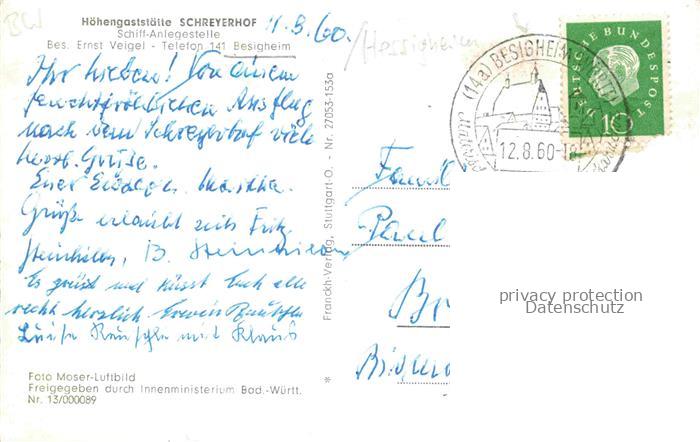 BW
Höhengaststätte SCHREYERHOF
Schiff-Anlegestelle
Bes. Ernst Veigel - Telefon 141 Besigheim
11.8.60.
/Hessigheim
Ihr Lieben! Von einem
feuchtfröhlichen Ausflug
nach dem Schreyerhof viele
herzl. Grüße.
Martha.
Grüße erlaubt sich Fritz
B.
Es grüsst und küsst Euch alle
recht herzlich
Luise mit Klaus
Foto Moser-Luftbild
Freigegeben durch Innenministerium Bad.-Württ.
Nr. 13/000089
Franckh-Verlag, Stuttgart-O. - Nr. 27053-153a
*
(14a) BESIGHEIM
12.8.60-18
DEUTSCHE BUNDESPOST
10
Famil
Paul
Br
privacy protection
Datenschutz